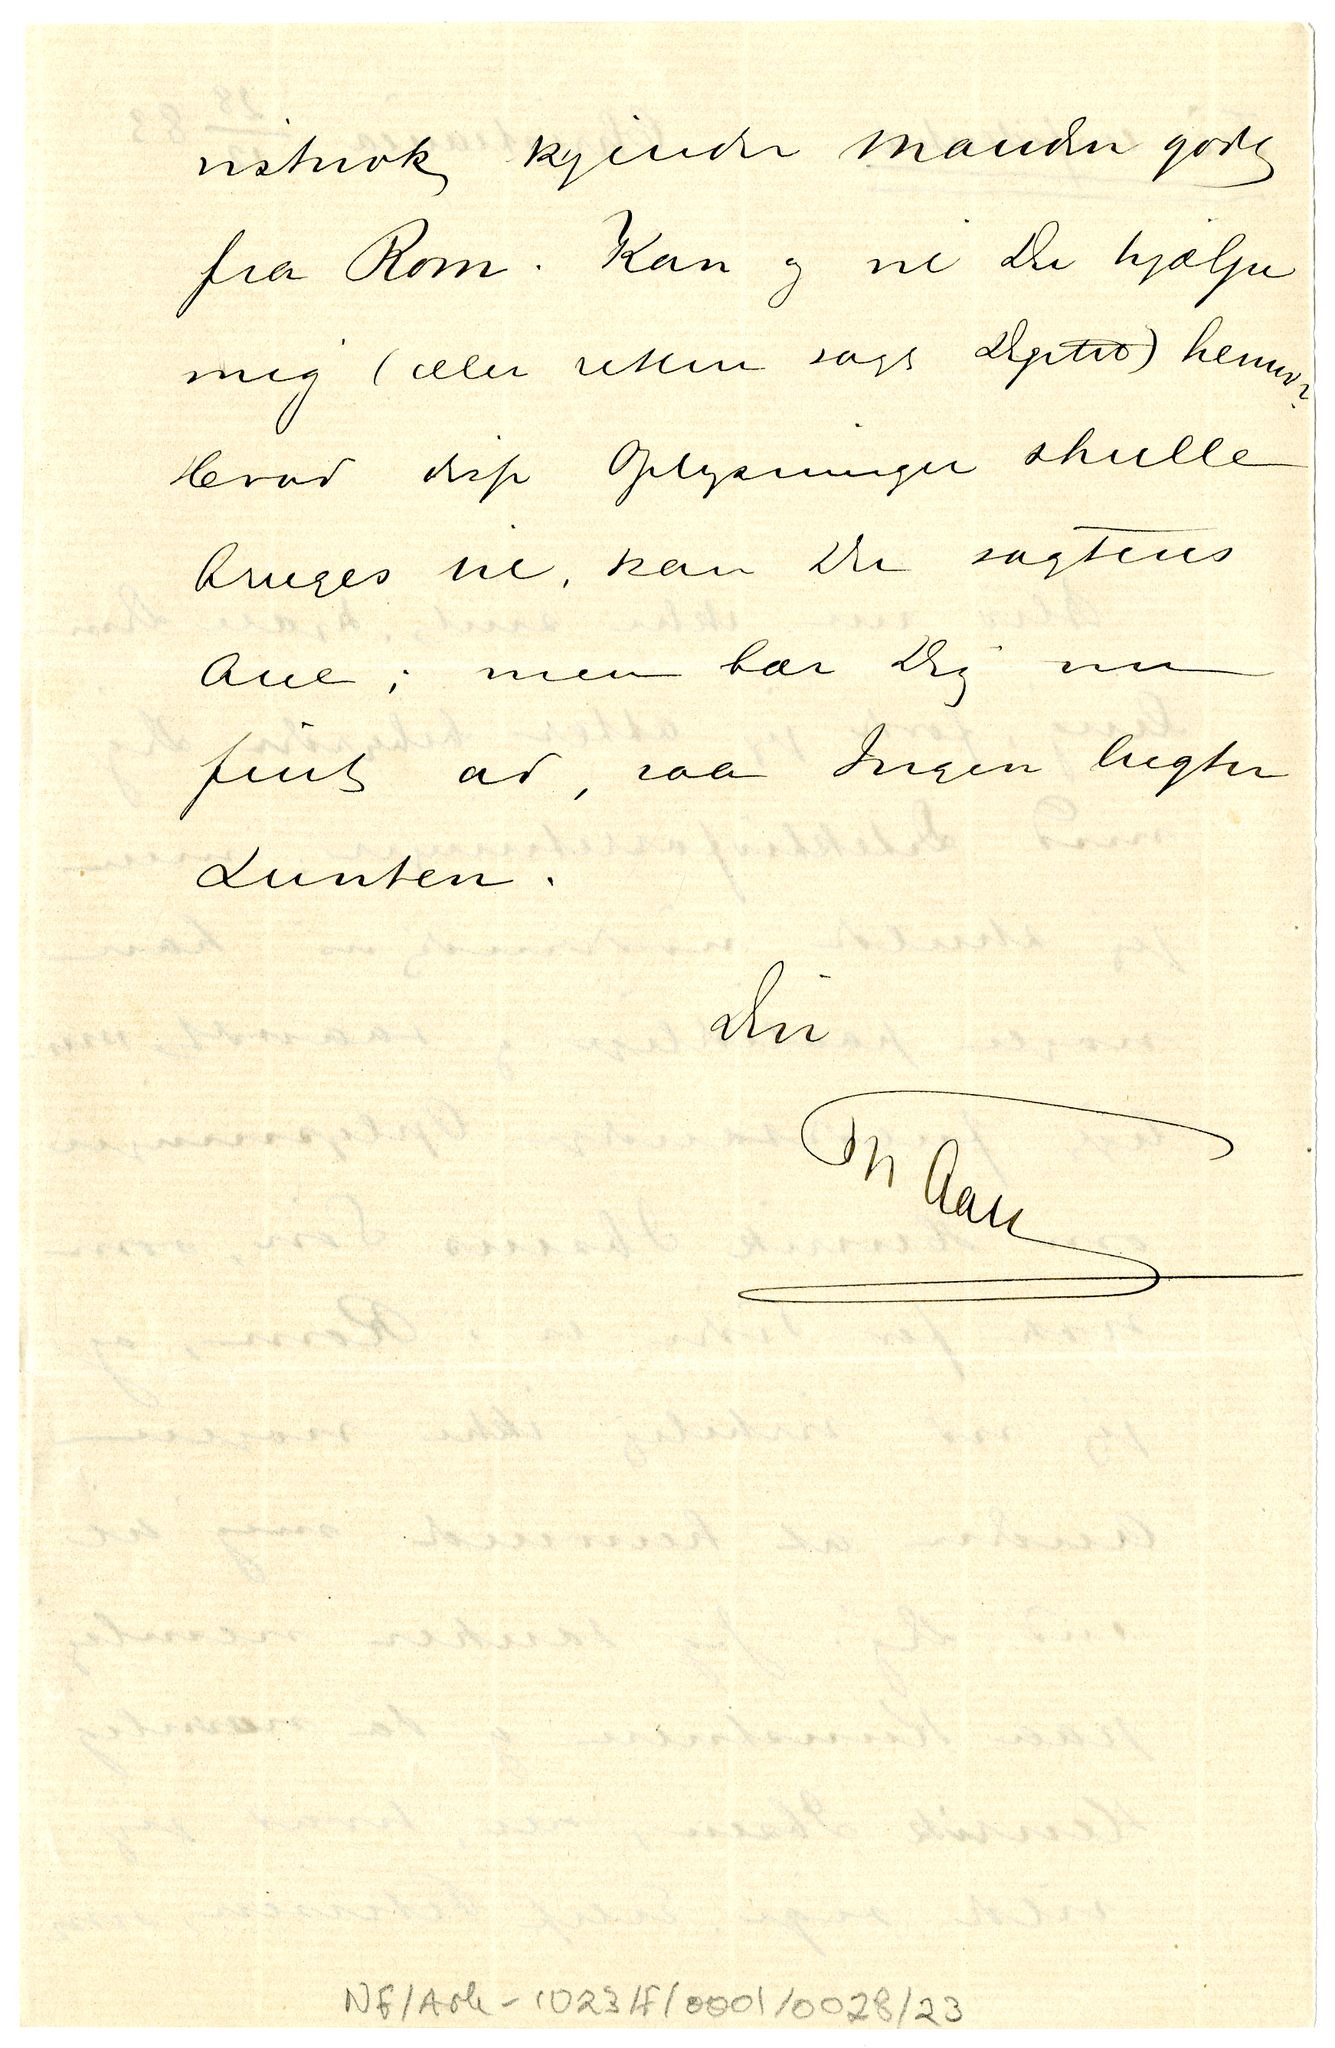 vistnok kjender Manden godt
fra Rom. Kan og vil Du hjælpe
mig (eller rettere sagt Dptet) hermed?
Hvad disse Oplysninger skulle
bruges til, kan Du sagtens
ane; men bær Dig nu
fint ad, saa Ingen lugter
Lunten.
Din
Th Aall
NB/Ark-1023/F/0001/0028/23